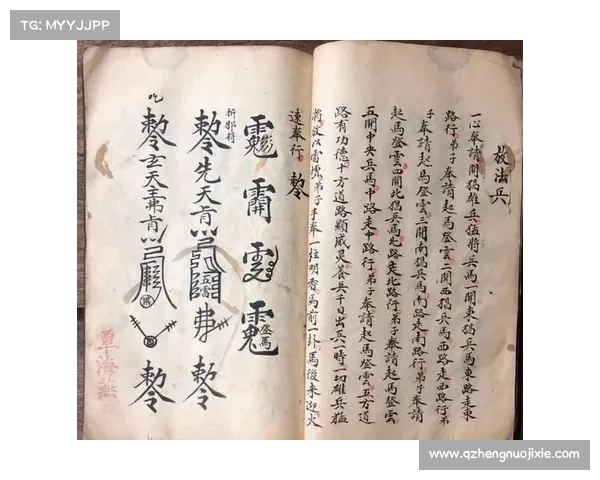 TG: MYYJJPP
放法兵
一心奉請開猖雄兵猛將兵馬一開東猖兵馬東路走東
路行弟子奉請起馬登雲二開西猖兵馬西路走西路行弟
子奉請起馬登雲三開南猖兵馬南路走南路行弟子奉請
起馬登雲四開北猖兵馬北路走北路行弟子奉請起馬登雲
五開中央兵馬中路走中路行弟子奉請起馬登雲五方道
路有功德十方道路顯威灵養兵千日出兵一時一切雄兵猛
將 以雷 弟子手奉一炷明香馬前一卦馬後來迎火
速奉行 敕
登馬
折邪符
敕先天
五雷
敕
敕玄天
敕
www.qzhengnuojixie.com